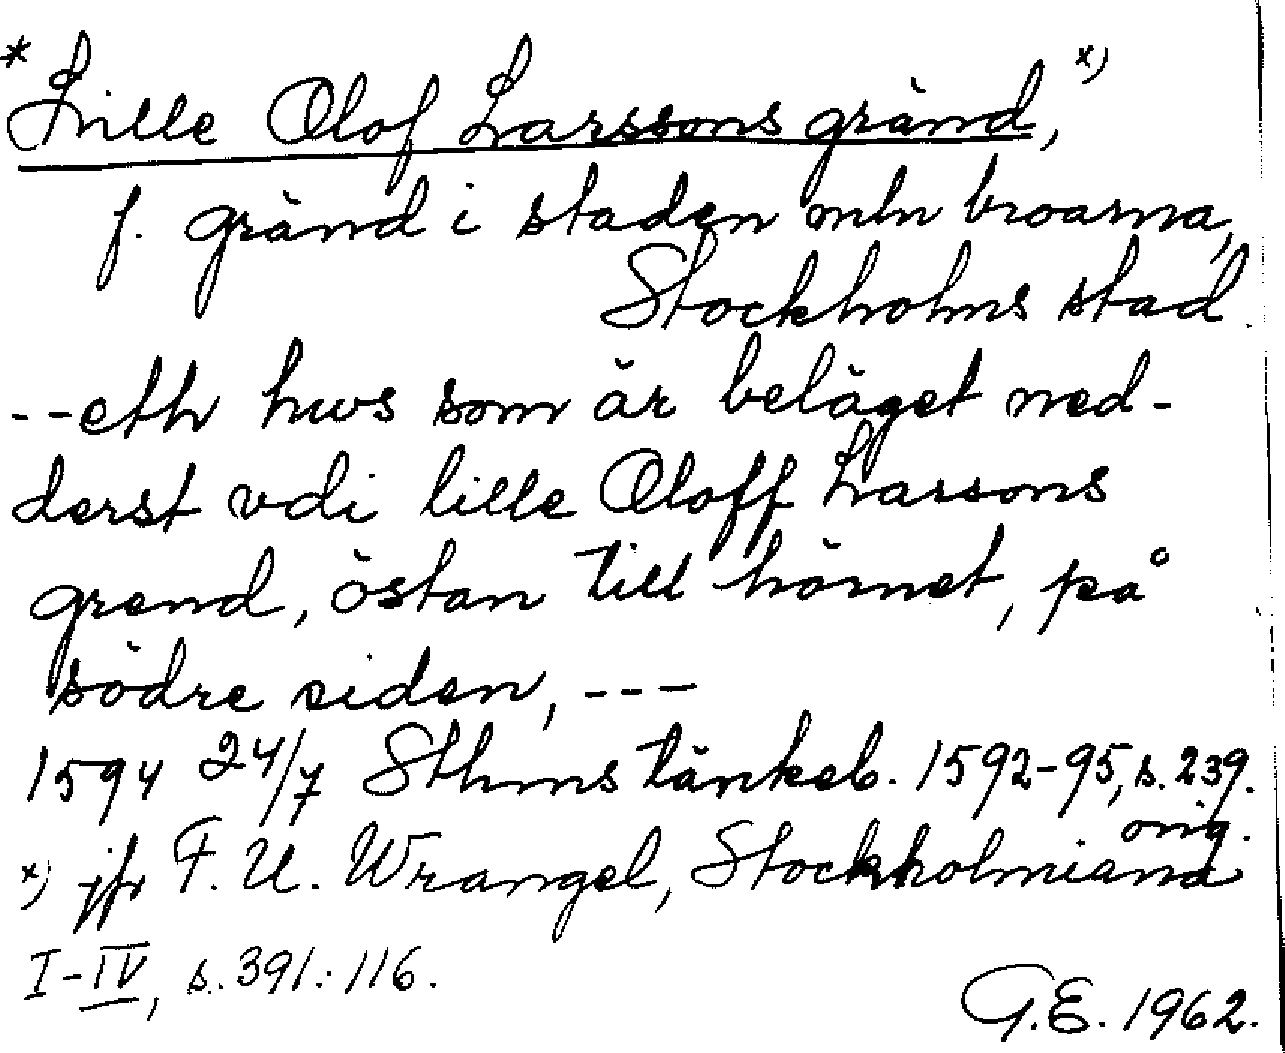 * Lille Olof Larssons gränd, x)
f. gränd i staden mln broarna,
Stockholms stad.
--eth hws som är beläget ned-
derst vdi lille Oloff Larsons
grend, östan till hörnet, på
södre siden, ---
1594 24/7 Sthms tänkeb. 1592-95, s. 239.
orig.
x) jfr F. U. Wrangel, Stockholmiana
I-IV, s. 391:116.
G.E. 1962.